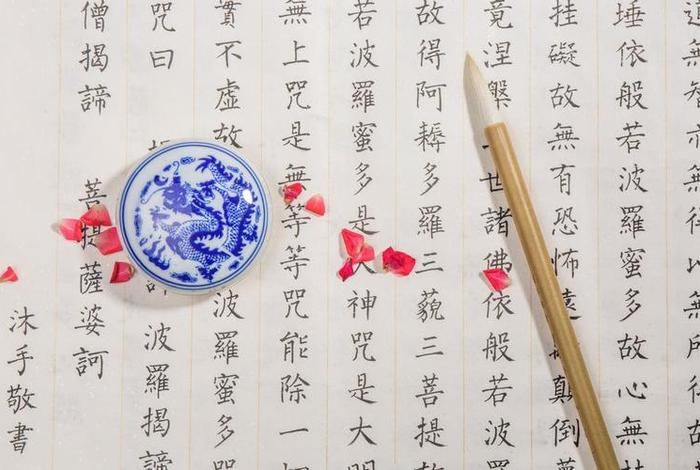 道無智亦無得以無所得故
埵依般若波羅蜜多故心無
挂礙故無有恐怖遠顛倒夢
竟涅槃世諸佛依般若波羅
故得阿耨多羅三藐三菩提故
若波羅蜜多是大神咒是大明
無上咒是無等等咒能除一切
實不虛故波羅蜜多咒
咒曰波羅揭諦
僧揭諦菩提薩婆訶
沐手敬書